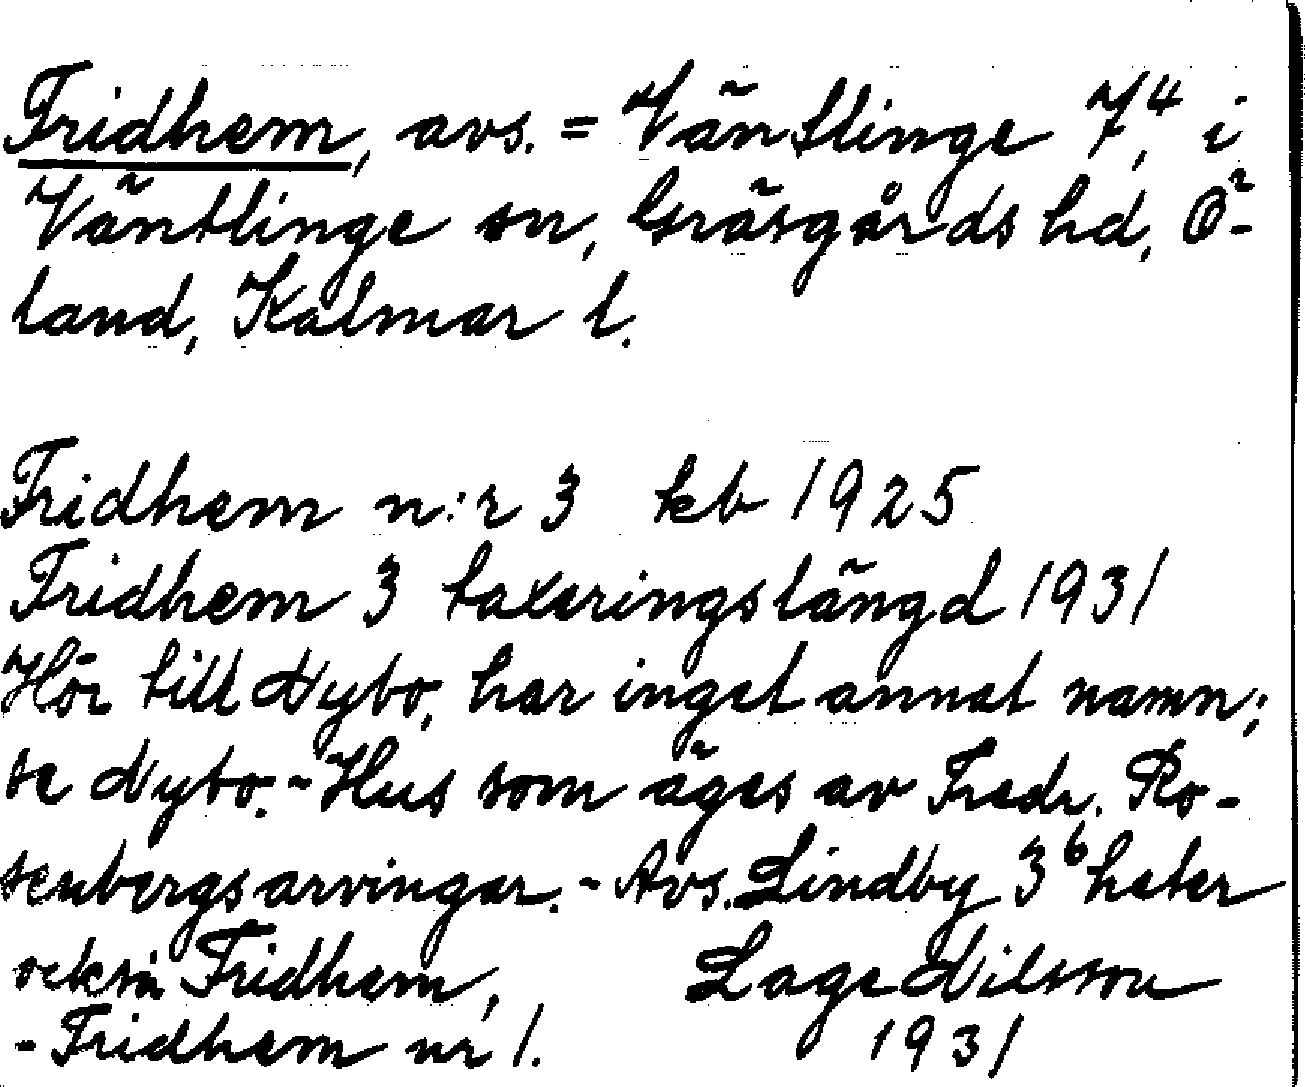 Fridhem, avs. = Väntlinge 7⁴, i
Väntlinge sn, Gräsgårds hd, Ö-
land, Kalmar l.
Fridhem n:r 3 kb 1925
Fridhem 3 taxeringslängd 1931
Hör till Nybo, har inget annat namn;
se Nybo. - Hus som äges av Fredr. Ro-
senbergs arvingar. - Avs. Lindby 3⁶ heter
också Fridhem,
Lage Nilsson
- Fridhem nr 1.
1931